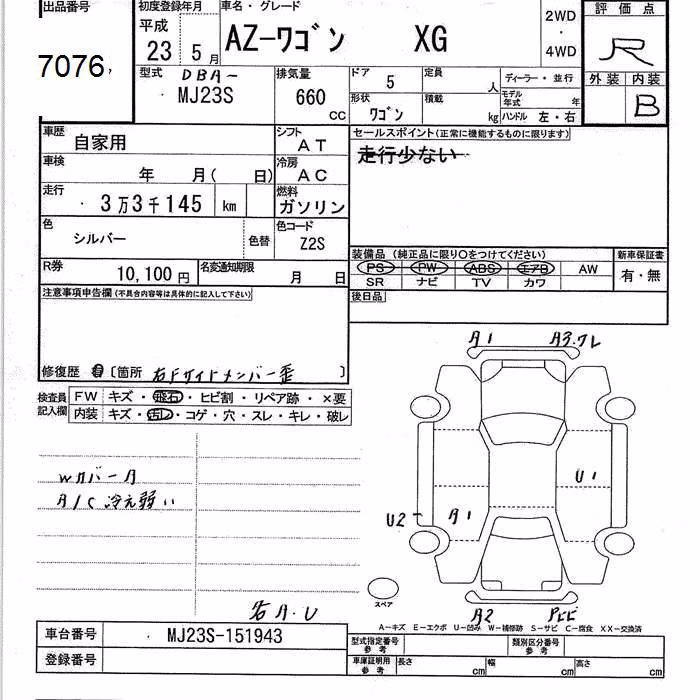 出品番号
7076
初度登録年月
平成
23 5 月
車名・グレード
AZ-ワゴン XG
2WD
・
4WD
評価点
R
外装 内装
B
型式 DBA-
MJ23S
排気量
660
CC
ドア 5
定員 人
ディーラー・並行
形状
ワゴン
積載 kg
モデル年式 年
ハンドル 左・右
車歴
自家用
シフト
AT
セールスポイント(正常に機能するものに限ります)
走行少ない
車検 年 月( 日)
冷房
AC
走行
3万3千145 km
燃料
ガソリン
色
シルバー
色替
色コード
Z2S
装備品 (純正品に限り○をつけてください)
PS PW ABS エアB AW
SR ナビ TV カワ
新車保証書
有・無
R券
10,100円
名変通知期限 月 日
後日品
注意事項申告欄(不具合内容等は具体的に記入して下さい)
修復歴 有 〔箇所 右Fサイドメンバー歪 〕
検査員
記入欄
FW キズ・飛石・ヒビ割・リペア跡・×要
内装 キズ・汚レ・コゲ・穴・スレ・キレ・破レ
Wカバー
A/C冷え弱い
A1
U1
U2
A1
A2
スペア
A-キズ E-エクボ U-凹み W-補修跡 S-サビ C-腐食 XX-交換済
車台番号 MJ23S-151943
登録番号
型式指定番号
参考
類別区分番号
参考
車庫証明用
参考
長さ cm
幅 cm
高さ cm